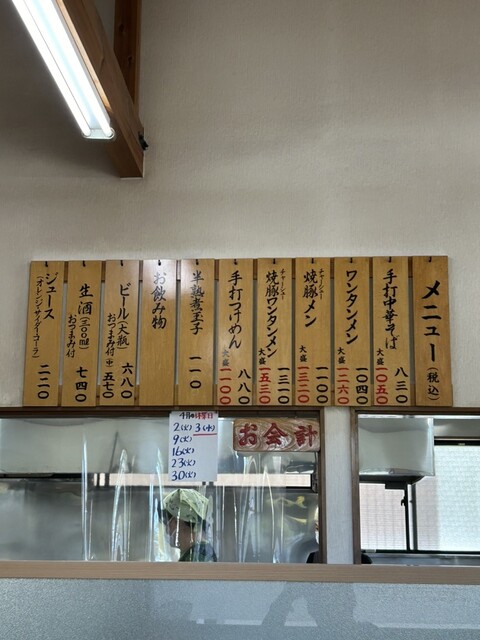 メニュー(税込)
手打中華そば 八三〇
大盛 一〇五〇
ワンタンメン 一〇四〇
大盛 一二六〇
チャーシュー
焼豚メン 一一〇〇
大盛 一三二〇
チャーシュー
焼豚ワンタンメン 一三一〇
大盛 一五三〇
手打つけめん 八八〇
大盛 一一〇〇
半熟煮玉子 一一〇
お飲み物
ビール(大瓶) 六八〇
おつまみ付 (中) 五七〇
生酒(三〇〇ml) 七四〇
おつまみ付
ジュース 二二〇
(オレンジ・サイダー・コーラ)
4月の休業日
2(火) 3(水)
9(火)
16(火)
23(火)
30(火)
お会計